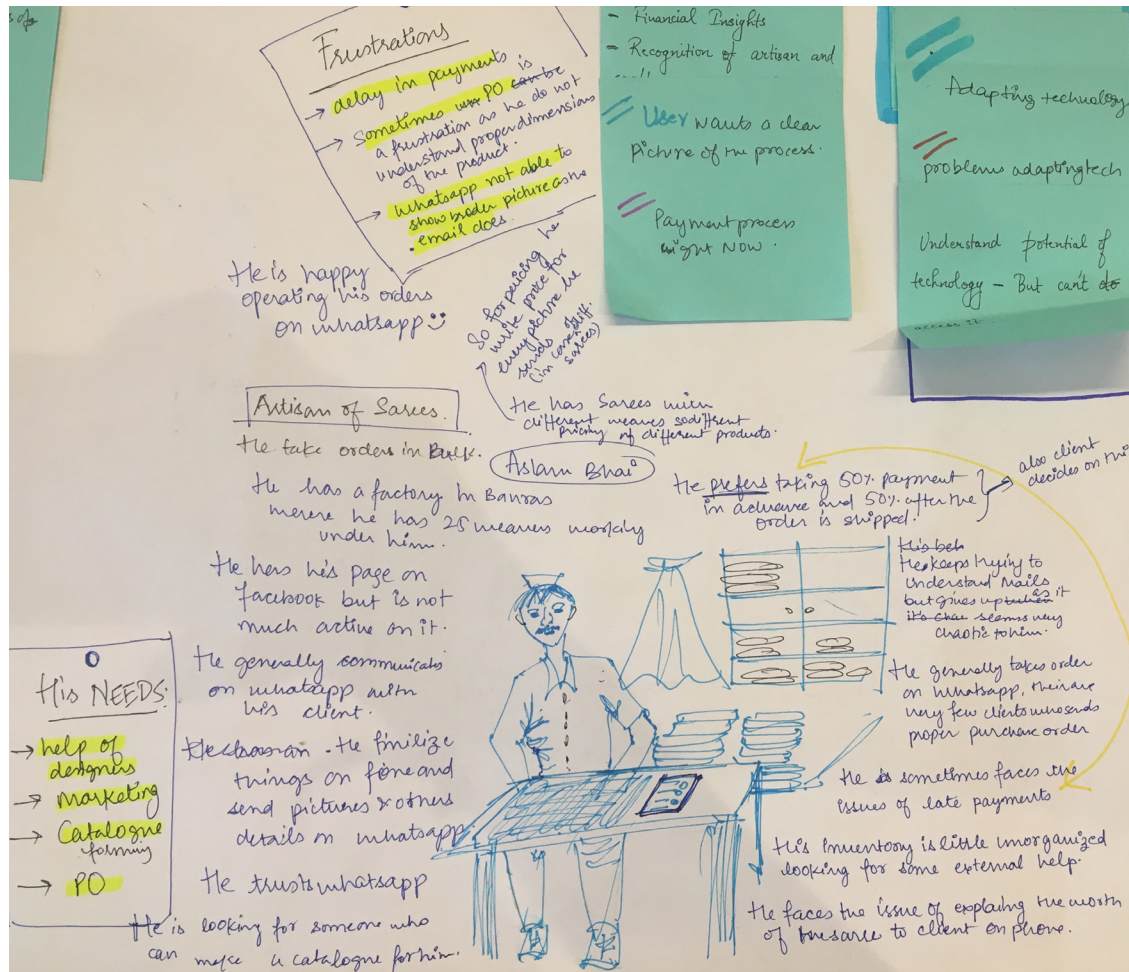 Frustrations
→ delay in payments
→ Sometimes PO is
a frustration as he do not
understand proper dimensions
of the product.
→ Whatsapp not able to
show broder picture as the
email does.
- Financial Insights
- Recognition of artisan and
User wants a clear
picture of the process.
Payment process
right NOW.
Adapting technology
problems adapting tech
Understand potential of
technology - But can't do
access it.
He is happy
operating his orders
on whatsapp
So for pricing he
write price for
every picture he
sends it
(in case of diff
sarees)
Artisan of Sarees.
He take orders in Bulk.
He has Sarees with
different weaves so diffrent
pricing of different products.
Aslam Bhai
He has a factory in Banras
where he has 25 weavers working
under him.
He prefers taking 50% payment
in advance and 50% after the
order is shipped.
also client
decides on this
He has his page on
facebook but is not
much active on it.
He generally communicates
on whatsapp with
his client.
He finilize
things on fone and
send pictures & others
details on whatsapp
He trusts whatsapp
He is looking for someone who
can make a catalogue for him.
His NEEDS:
→ help of
designers
→ Marketing
→ Catalogue
forming
→ PO
His beh
He keeps trying to
understand mails
but gives up as it
seems very
chaotic to him.
He generally takes order
on whatsapp, their are
very few clients who sends
proper purchase order
He sometimes faces the
issues of late payments
His inventory is little unorganized
looking for some external help.
He faces the issue of explaing the worth
of the saree to client on phone.